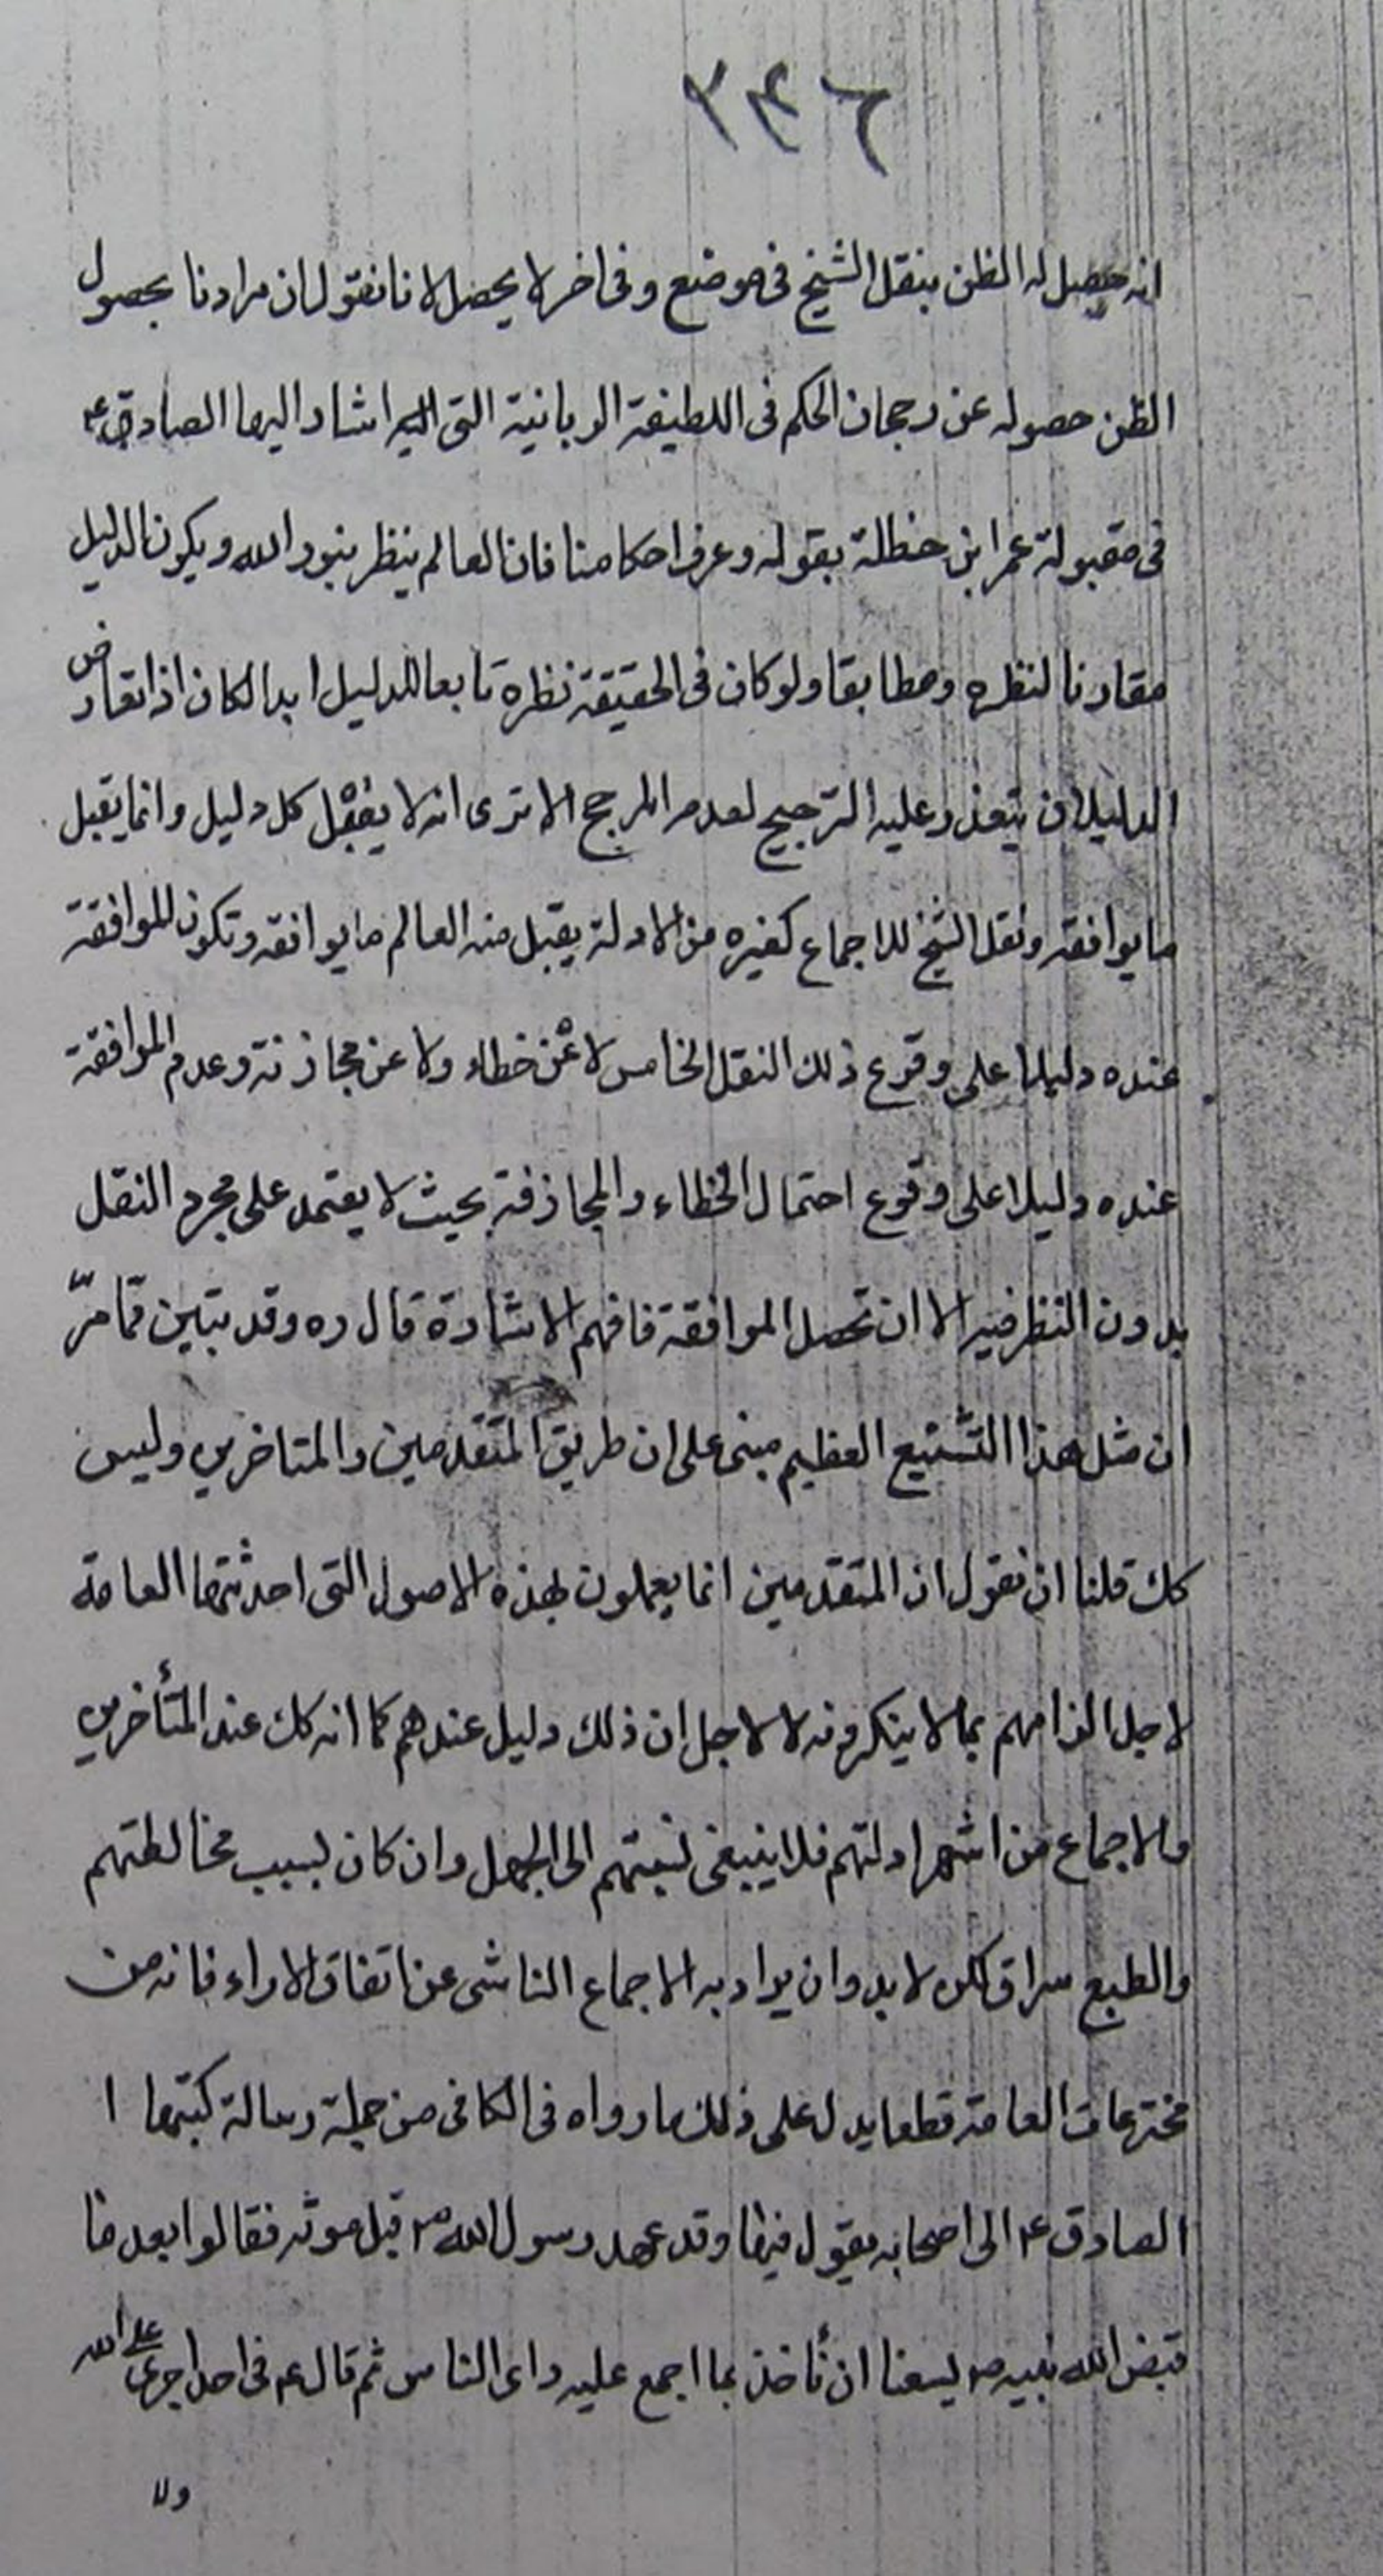 ٢٤٦
انه حصل له الظن بنقل الشيخ فى موضع وفى اخر لا يحصل لانا نقول ان مرادنا بحصول
الظن حصوله عن رجحان الحكم فى اللطيفة الربانية التى اشار اليها الصادق ع
فى مقبولة عمر ابن حنظلة بقوله وعرف احكامنا فان العالم ينظر بنور الله ويكون الدليل
مقارنا لنظره ومطابقا ولو كان فى الحقيقة نظره تابعا للدليل ابدا لكان اذا تعارض
الدليلان يتعذر عليه الترجيح لعدم المرجح الا ترى انه لا يقبل كل دليل وانما يقبل
ما يوافقه ونقل الشيخ للاجماع كغيره من الادلة يقبل منه العالم ما يوافقه وتكون الموافقة
عنده دليلا على وقوع ذلك النقل الخاص لا عن خطاء ولا عن مجازفة وعدم الموافقة
عنده دليلا على وقوع احتمال الخطاء والمجازفة بحيث لا يعتمد على مجرد النقل
بدون النظر فيه الا ان تحصل الموافقة فافهم الاشارة قال ره وقد تبين ممّا مرّ
ان مثل هذا التشنيع العظيم مبنى على ان طريق المتقدمين والمتاخرين وليس
كك قلنا ان نقول ان المتقدمين انما يعملون بهذه الاصول التى احدثتها العامة
لاجل الزامهم بما لا ينكرونه لا لاجل ان ذلك دليل عندهم كما انه كك عند المتأخرين
والاجماع من اشهر ادلتهم فلا ينبغى نسبتهم الى الجهل وان كان لسبب مخالطتهم
والطبع سراق لكن لا بد وان يراد به الاجماع الناشى عن اتفاق الاراء فانه من
مخترعات العامة قطعا يدل على ذلك ما رواه فى الكافى من جملة رسالة كتبها ا
الصادق ع الى اصحابه يقول فيها وقد عهد رسول الله ص قبل موته فقالوا بعد ما
قبض الله نبيه ص يسعنا ان نأخذ بما اجمع عليه راى الناس ثم قال ع فى احد اجرى على الله
ولا